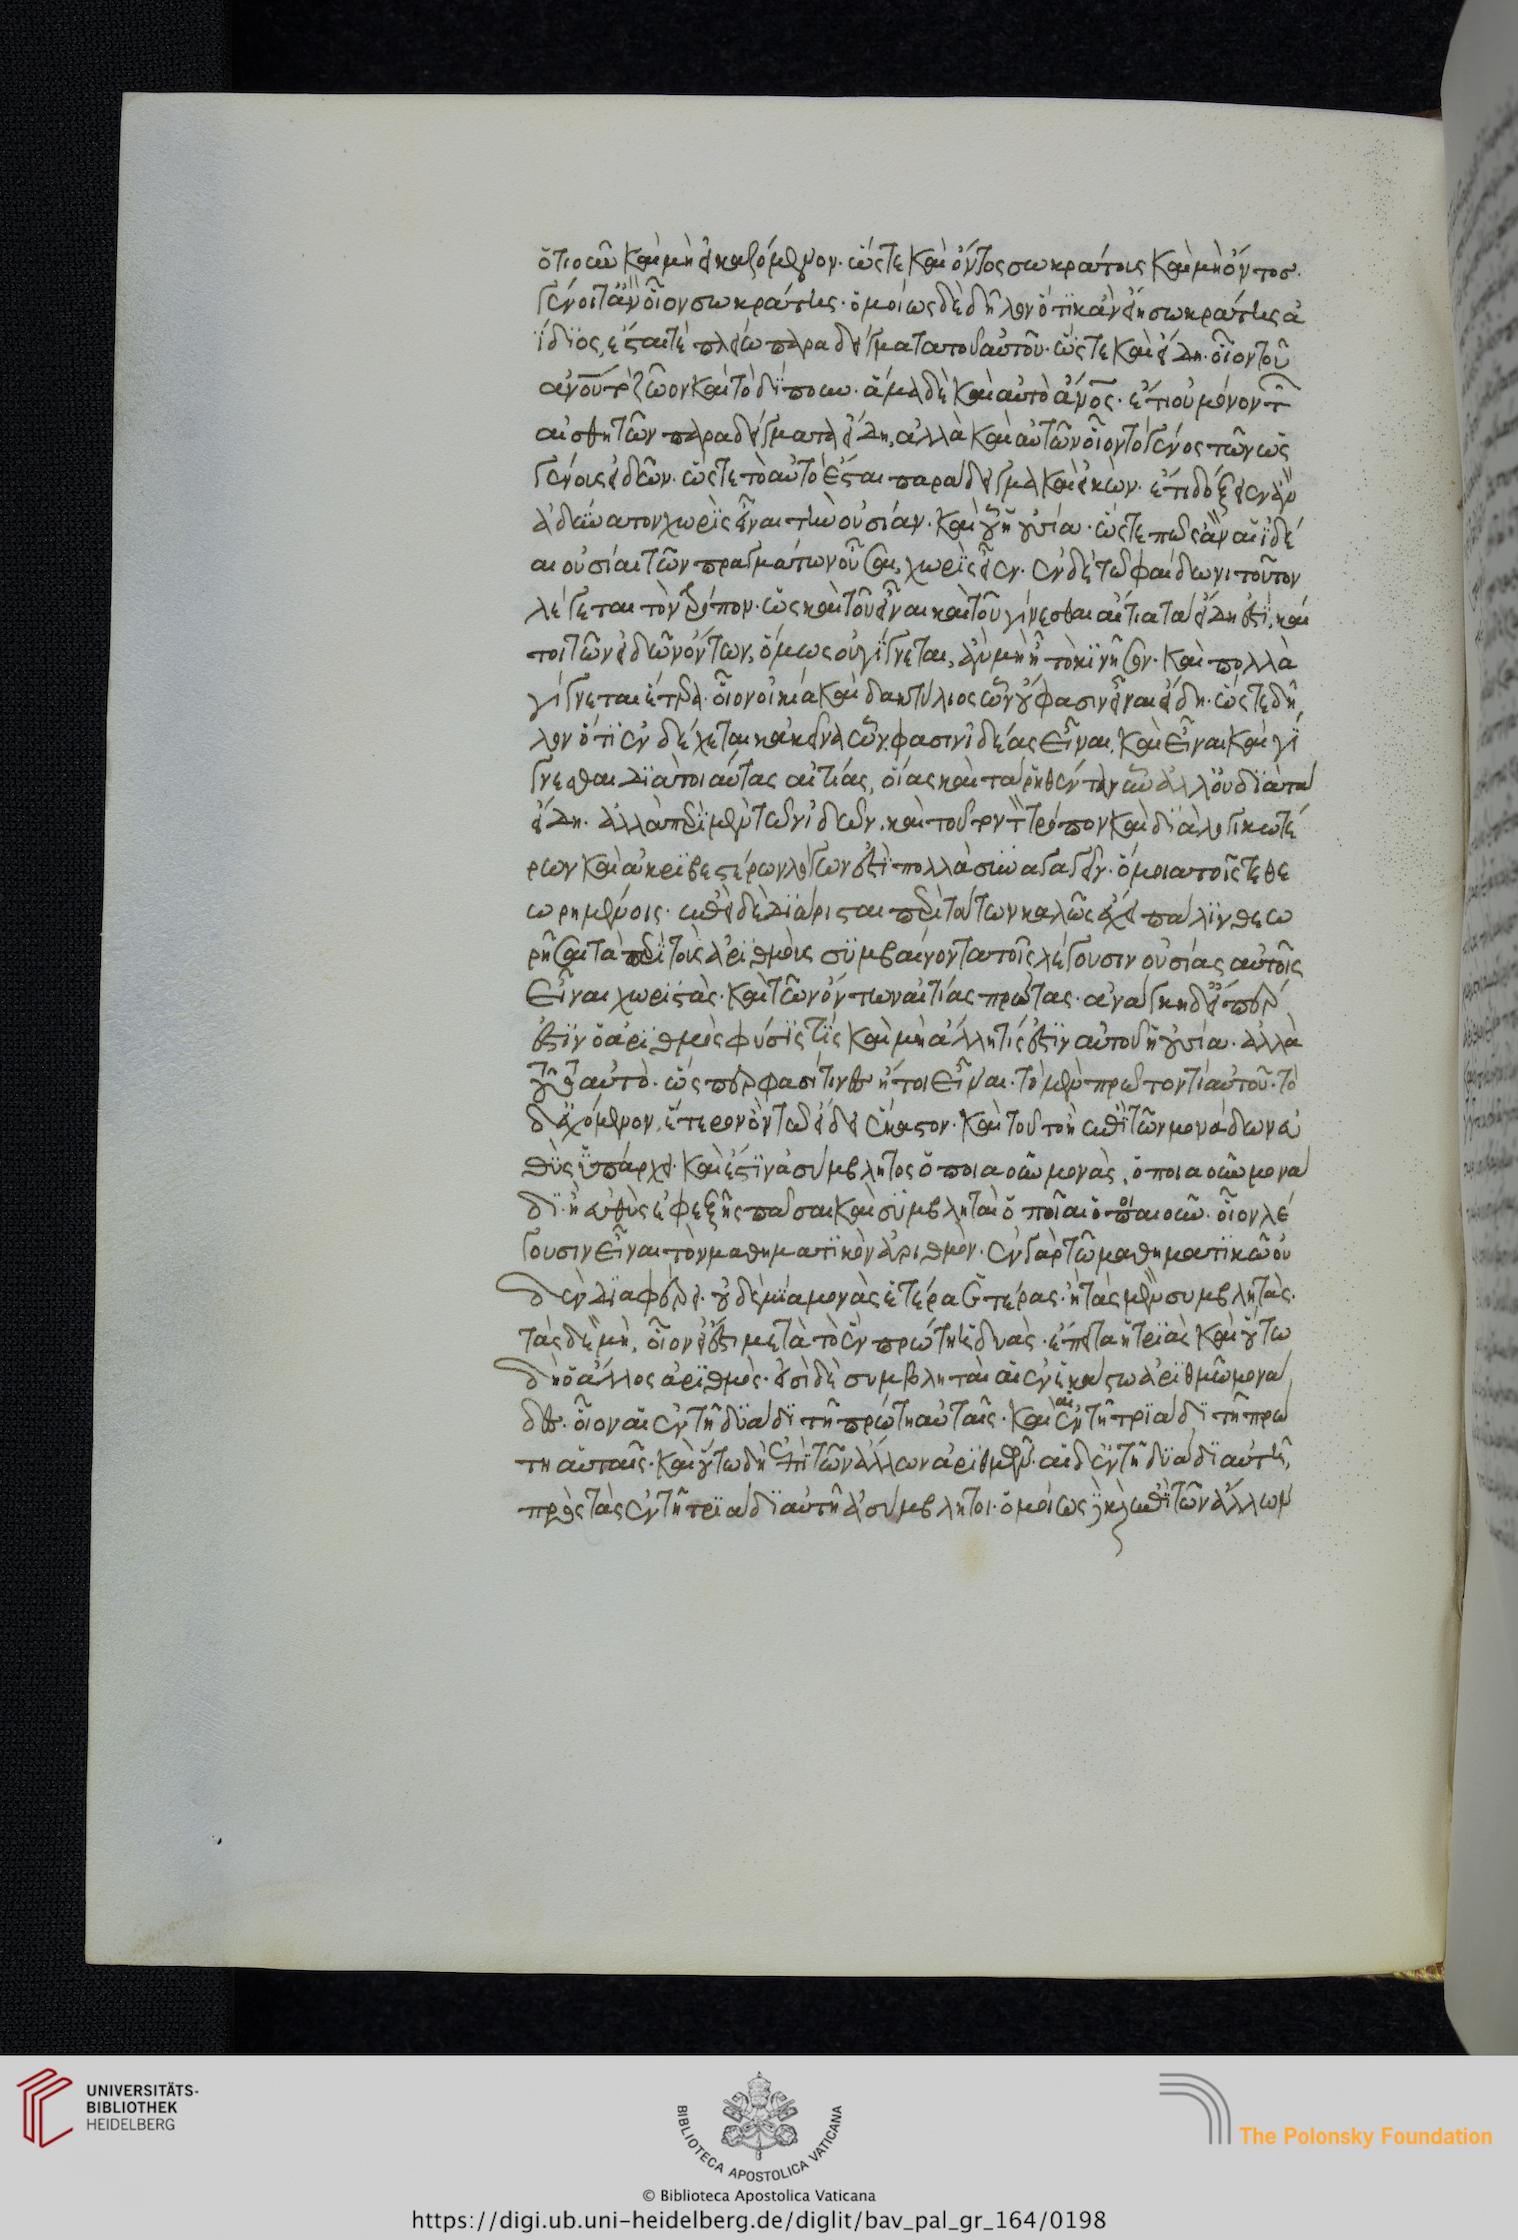 ὁτιοῦν καὶ μὴ εἰκαζόμενον· ὥστε καὶ ὄντος σωκράτους καὶ μὴ ὄντος.
γένοιτ' ἂν οἷον σωκράτης· ὁμοίως δὲ δῆλον ὅτι κἂν εἰ ἦ σωκράτης ἀ
ΐδιος, ἔσται τὲ πλείω παραδείγματα τοῦ αὐτοῦ· ὥστε καὶ εἴδη· οἷον τοῦ
ἀνου τὸ ζῶον καὶ τὸ δίπουν· ἅμα δὲ καὶ αὐτὸ ἄνος· ἔτι οὐ μόνον τ
αἰσθητῶν παραδείγματα εἴδη, ἀλλὰ καὶ αὐτῶν οἷον τὸ γένος τῶν ὡς
γένους εἰδῶν· ὥστε τὸ αὐτὸ ἔσται παράδειγμα καὶ εἰκών· ἔτι δόξειεν ἂν
ἀδύνατον χωρὶς εἶναι τὴν οὐσίαν· καὶ οὗ ἡ οὐσία· ὥστε πῶς ἂν αἱ ἰδέ
αι οὐσίαι τῶν πραγμάτων οὖσαι, χωρὶς εἶεν· ἐν δὲ τῶ φαίδωνι τοῦτον
λέγεται τὸν τρόπον· ὡς καὶ τοῦ εἶναι καὶ τοῦ γίνεσθαι αἴτια τὰ εἴδη ἐστὶ, καί
τοι τῶν εἰδῶν ὄντων, ὅμως οὐ γίγνεται, ἂν μὴ ἦ τὸ κινῆσον· καὶ πολλὰ
γίγνεται ἕτερα· οἷον οἰκία καὶ δακτύλιος ὧν οὔ φασιν εἶναι εἴδη· ὥστε δῆ
λον ὅτι ἐνδέχεται κἀκεῖνα ὧν φασιν ἰδέας εἶναι, καὶ εἶναι καὶ γί
γνεσθαι διὰ τοιαύτας αἰτίας, οἵας καὶ τὰ ῥηθέντα νῦν ἀλλ' οὐ διὰ τὰ
εἴδη· ἀλλὰ περὶ μὲν τῶν ἰδεῶν· καὶ τοῦτον τ τρόπον καὶ διὰ λογικωτέ
ρων καὶ ἀκριβεστέρων λόγων ἐστὶ πολλὰ συναγαγεῖν· ὅμοια τοῖς τεθε
ωρημένοις· ἐπεὶ δὲ διώρισται περὶ τούτων καλῶς ἔχει πάλιν θεω
ρῆσαι τὰ περὶ τοὺς ἀριθμοὺς συμβαίνοντα τοῖς λέγουσιν οὐσίας αὐτοὺς
εἶναι χωριστὰς· καὶ τῶν ὄντων αἰτίας πρώτας· ἀνάγκη δ' εἴπερ
ἐστὶν ὁ ἀριθμὸς φύσις τὶς καὶ μὴ ἄλλη τίς ἐστιν αὐτοῦ ἡ οὐσία· ἀλλὰ
τοῦτ' αὐτὸ· ὥς περ φασί τινες ἤτοι εἶναι· τὸ μὲν πρῶτον τὶ αὐτοῦ· τὸ
δ' ἐχόμενον, ἕτερον ὂν τῶ εἴδει ἕκαστον· καὶ τοῦτο ἢ ἐπὶ τῶν μονάδων εὐ
θὺς ὑπάρχει· καὶ ἔστιν ἀσύμβλητος ὁποιαοῦν μονὰς, ὁποιαοῦν μονά
δι· ἢ εὐθὺς ἐφεξῆς πᾶσαι καὶ συμβληταὶ ὁποῖαι ὁποιαιοῦν· οἷον λέ
γουσιν εἶναι τὸν μαθηματικὸν ἀριθμόν· ἐν γὰρ τῶ μαθηματικῶ οὐ
δὲν διαφέρει· οὐδεμία μονὰς ἑτέρα ἑτέρας· ἢ τὰς μὲν συμβλητὰς·
τὰς δὲ μὴ, οἷον εἰ ἔστι μετὰ τὸ ἓν πρώτη ἡ δυὰς· ἔπειτα ἡ τριὰς καὶ οὕτω
δὴ ὁ ἄλλος ἀριθμὸς· εἰσὶ δὲ συμβληταὶ αἱ ἐν ἑκάστω ἀριθμῶ μονά
δες· οἷον αἱ ἐν τῆ δυάδι τῆ πρώτη αὑταῖς· καὶ αἱ ἐν τῆ τριάδι τῆ πρώ
τη αὑταῖς· καὶ οὕτω δὴ ἐπὶ τῶν ἄλλων ἀριθμῶν· αἱ δ' ἐν τῆ δυάδι αὐτῆ,
πρὸς τὰς ἐν τῆ τριάδι αὐτῆ ἀσύμβλητοι· ὁμοίως καὶ ἐπὶ τῶν ἄλλων
UNIVERSITÄTS-
BIBLIOTHEK
HEIDELBERG
BIBLIOTECA APOSTOLICA VATICANA
The Polonsky Foundation
© Biblioteca Apostolica Vaticana
https://digi.ub.uni-heidelberg.de/diglit/bav_pal_gr_164/0198